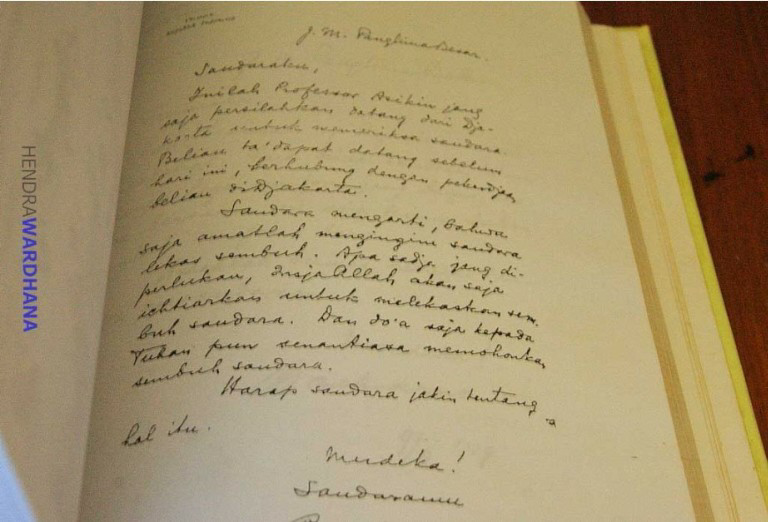 J. M. Panglima Besar.
Saudaraku,
Inilah Professor Asikin jang
saja persilahkan datang dari Dja-
karta untuk memeriksa saudara.
Beliau ta' dapat datang sebelum
hari ini, berhubung dengan pekerdjaan
beliau di Djakarta.
Saudara mengerti, bahwa
saja amatlah mengingini saudara
lekas sembuh. Apa sadja jang di-
perlukan, Insja Allah akan saja
ichtiarkan untuk melekaskan sem-
buh saudara. Dan do'a saja kepada
Tuhan pun senantiasa memohonkan
sembuh saudara.
Harap saudara jakin tentang
hal itu.
Merdeka!
Saudaramu
HENDRAWARDHANA